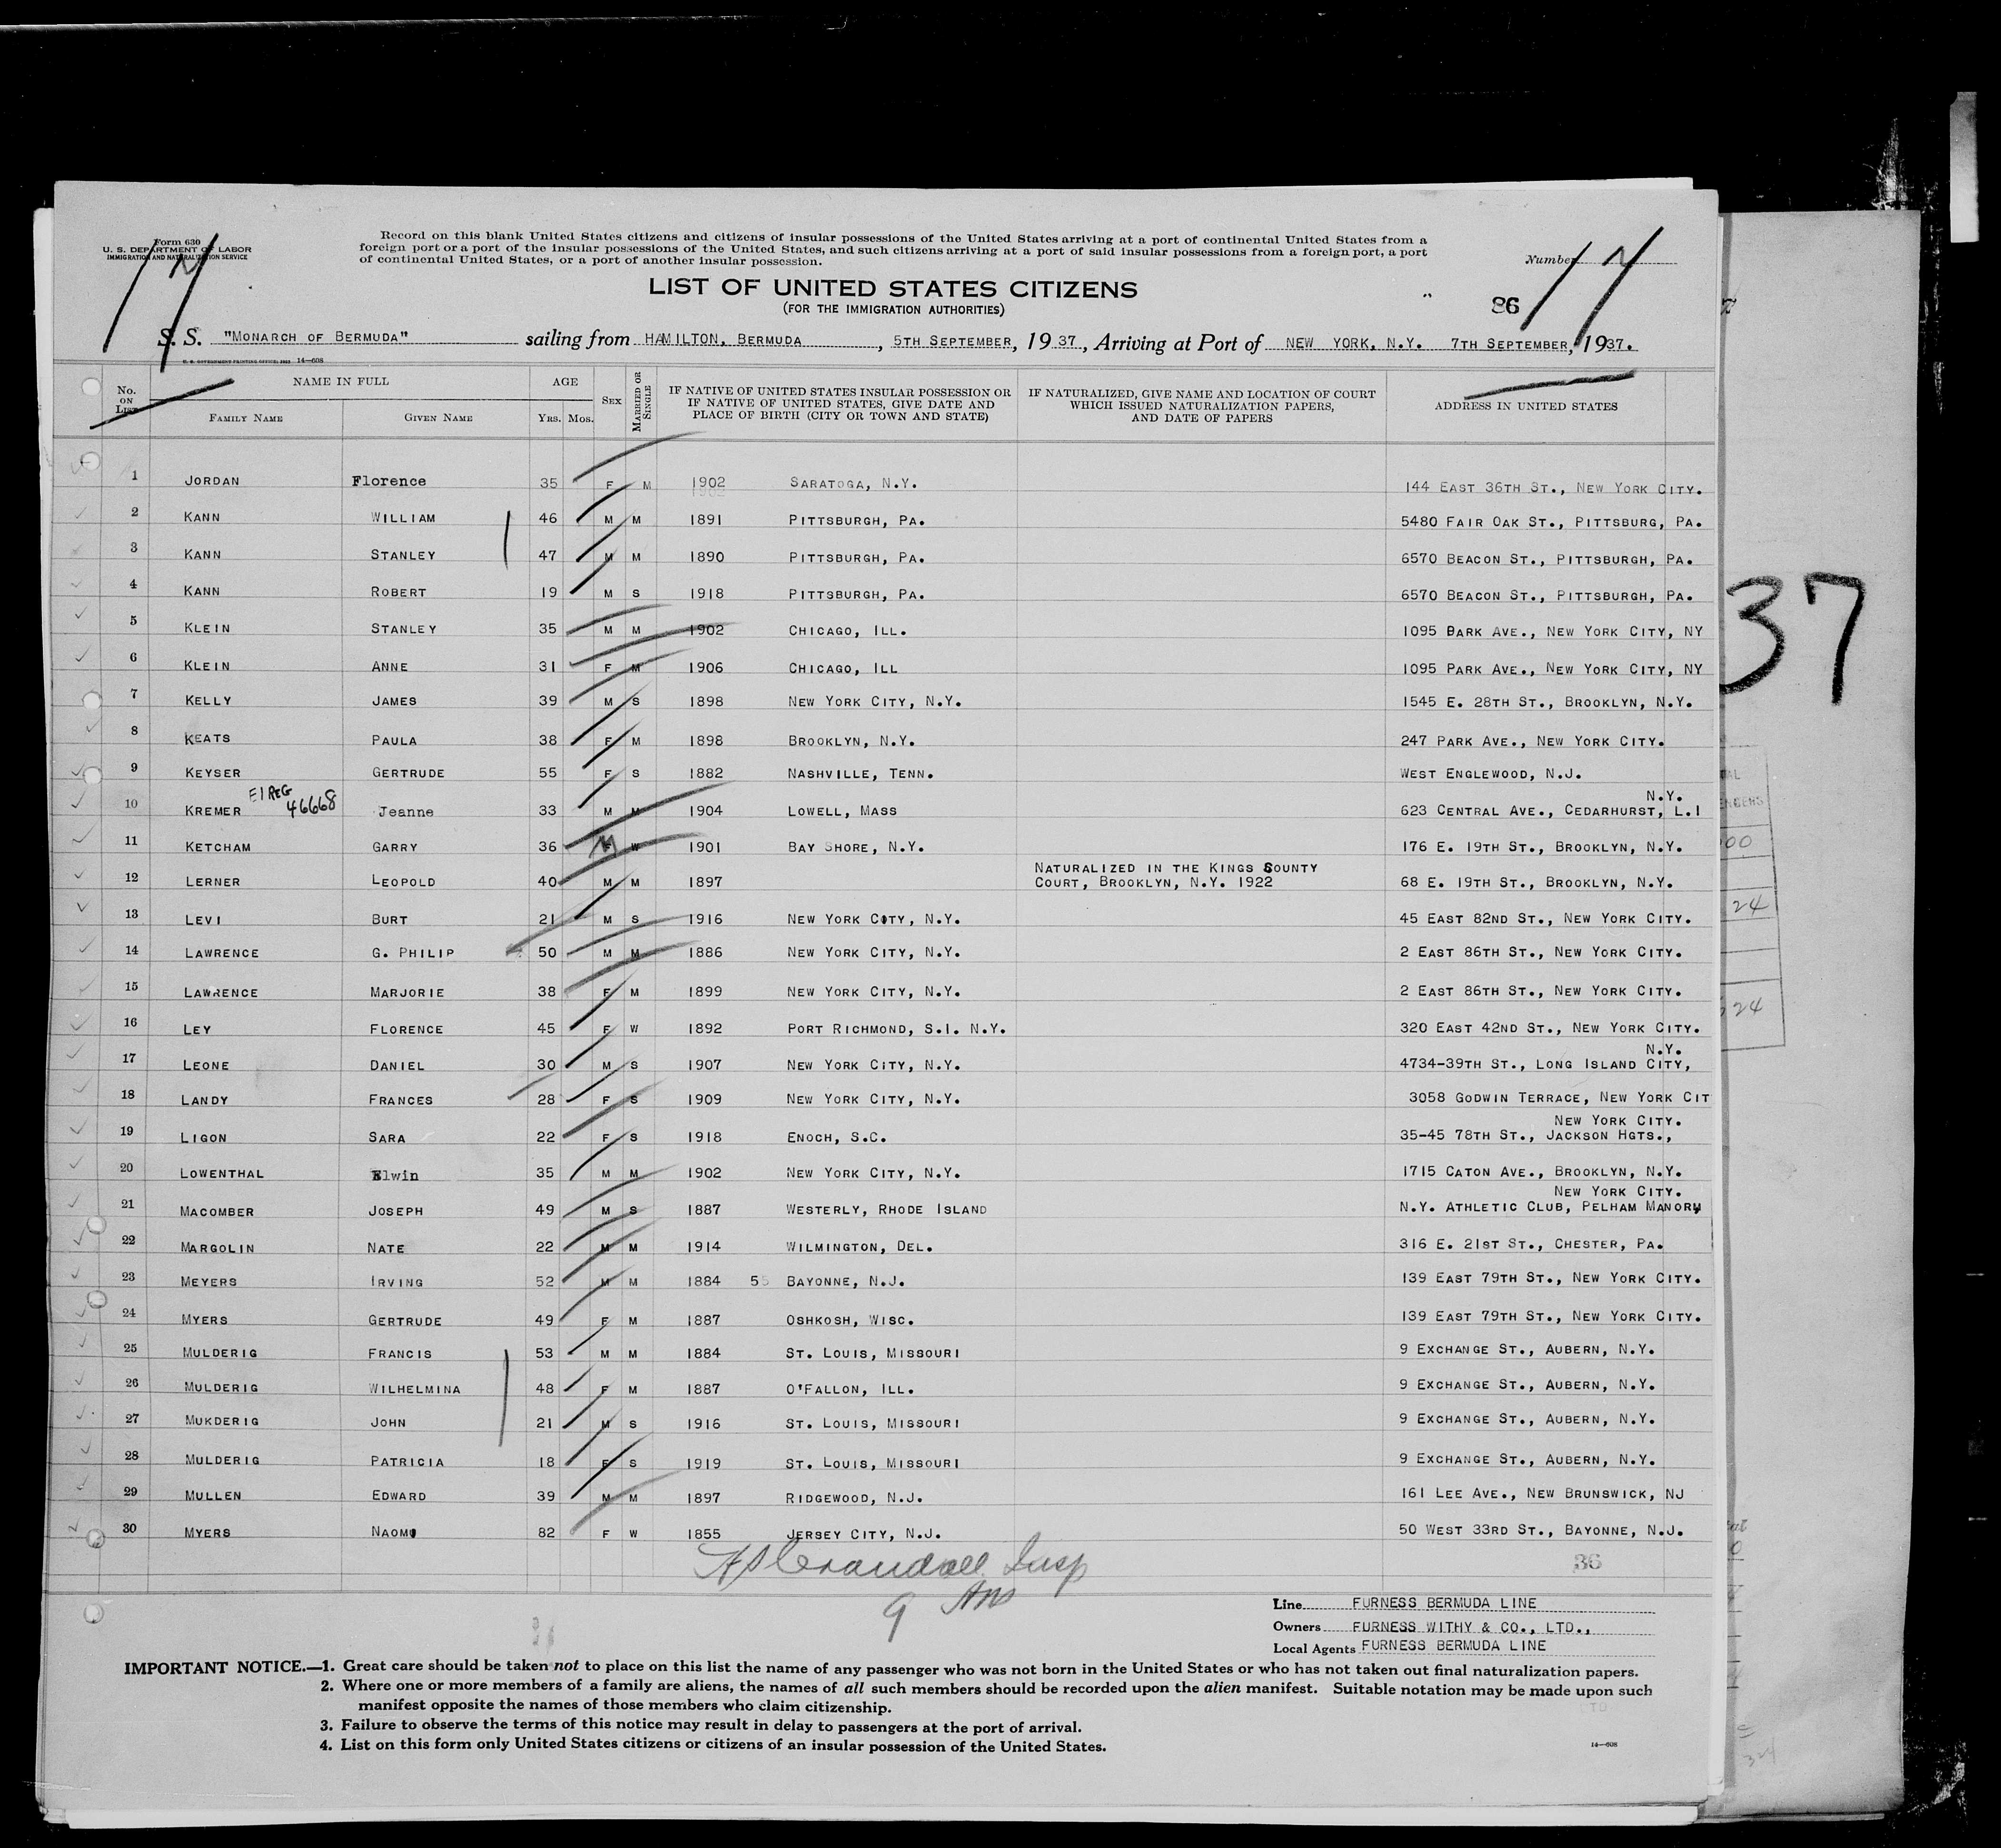 Form 630
U. S. DEPARTMENT OF LABOR
IMMIGRATION AND NATURALIZATION SERVICE
Record on this blank United States citizens and citizens of insular possessions of the United States arriving at a port of continental United States from a
foreign port or a port of the insular possessions of the United States, and such citizens arriving at a port of said insular possessions from a foreign port, a port
of continental United States, or a port of another insular possession.
Number 17
17
LIST OF UNITED STATES CITIZENS
(FOR THE IMMIGRATION AUTHORITIES)
86
S. S. "MONARCH OF BERMUDA" sailing from HAMILTON, BERMUDA, 5TH SEPTEMBER, 1937, Arriving at Port of NEW YORK, N.Y. 7TH SEPTEMBER, 1937.
14—608
No. ON LIST NAME IN FULL FAMILY NAME GIVEN NAME AGE YRS. MOS. SEX MARRIED OR SINGLE IF NATIVE OF UNITED STATES INSULAR POSSESSION OR IF NATIVE OF UNITED STATES, GIVE DATE AND PLACE OF BIRTH (CITY OR TOWN AND STATE) IF NATURALIZED, GIVE NAME AND LOCATION OF COURT WHICH ISSUED NATURALIZATION PAPERS, AND DATE OF PAPERS ADDRESS IN UNITED STATES
1 JORDAN Florence 35 F M 1902 SARATOGA, N.Y. 144 EAST 36TH ST., NEW YORK CITY.
2 KANN WILLIAM 46 M M 1891 PITTSBURGH, PA. 5480 FAIR OAK ST., PITTSBURG, PA.
3 KANN STANLEY 47 M M 1890 PITTSBURGH, PA. 6570 BEACON ST., PITTSBURGH, PA.
4 KANN ROBERT 19 M S 1918 PITTSBURGH, PA. 6570 BEACON ST., PITTSBURGH, PA.
5 KLEIN STANLEY 35 M M 1902 CHICAGO, ILL. 1095 BARK AVE., NEW YORK CITY, NY
6 KLEIN ANNE 31 F M 1906 CHICAGO, ILL 1095 PARK AVE., NEW YORK CITY, NY
7 KELLY JAMES 39 M S 1898 NEW YORK CITY, N.Y. 1545 E. 28TH ST., BROOKLYN, N.Y.
8 KEATS PAULA 38 F M 1898 BROOKLYN, N.Y. 247 PARK AVE., NEW YORK CITY.
9 KEYSER GERTRUDE 55 F S 1882 NASHVILLE, TENN. WEST ENGLEWOOD, N.J.
EI REG 46668 N.Y.
10 KREMER Jeanne 33 M M 1904 LOWELL, MASS 623 CENTRAL AVE., CEDARHURST, L.I
11 KETCHAM GARRY 36 M W 1901 BAY SHORE, N.Y. 176 E. 19TH ST., BROOKLYN, N.Y.
NATURALIZED IN THE KINGS COUNTY
12 LERNER LEOPOLD 40 M M 1897 COURT, BROOKLYN, N.Y. 1922 68 E. 19TH ST., BROOKLYN, N.Y.
13 LEVI BURT 21 M S 1916 NEW YORK CITY, N.Y. 45 EAST 82ND ST., NEW YORK CITY.
14 LAWRENCE G. PHILIP 50 M M 1886 NEW YORK CITY, N.Y. 2 EAST 86TH ST., NEW YORK CITY.
15 LAWRENCE MARJORIE 38 F M 1899 NEW YORK CITY, N.Y. 2 EAST 86TH ST., NEW YORK CITY.
16 LEY FLORENCE 45 F W 1892 PORT RICHMOND, S.I. N.Y. 320 EAST 42ND ST., NEW YORK CITY.
N.Y.
17 LEONE DANIEL 30 M S 1907 NEW YORK CITY, N.Y. 4734-39TH ST., LONG ISLAND CITY,
18 LANDY FRANCES 28 F S 1909 NEW YORK CITY, N.Y. 3058 GODWIN TERRACE, NEW YORK CIT
NEW YORK CITY.
19 LIGON SARA 22 F S 1918 ENOCH, S.C. 35-45 78TH ST., JACKSON HGTS.,
20 LOWENTHAL Elwin 35 M M 1902 NEW YORK CITY, N.Y. 1715 CATON AVE., BROOKLYN, N.Y.
NEW YORK CITY.
21 MACOMBER JOSEPH 49 M S 1887 WESTERLY, RHODE ISLAND N.Y. ATHLETIC CLUB, PELHAM MANOR,
22 MARGOLIN NATE 22 M M 1914 WILMINGTON, DEL. 316 E. 21ST ST., CHESTER, PA.
23 MEYERS IRVING 52 M M 1884 55 BAYONNE, N.J. 139 EAST 79TH ST., NEW YORK CITY.
24 MYERS GERTRUDE 49 F M 1887 OSHKOSH, WISC. 139 EAST 79TH ST., NEW YORK CITY.
25 MULDERIG FRANCIS 53 M M 1884 ST. LOUIS, MISSOURI 9 EXCHANGE ST., AUBERN, N.Y.
26 MULDERIG WILHELMINA 48 F M 1887 O'FALLON, ILL. 9 EXCHANGE ST., AUBERN, N.Y.
27 MUKDERIG JOHN 21 M S 1916 ST. LOUIS, MISSOURI 9 EXCHANGE ST., AUBERN, N.Y.
28 MULDERIG PATRICIA 18 F S 1919 ST. LOUIS, MISSOURI 9 EXCHANGE ST., AUBERN, N.Y.
29 MULLEN EDWARD 39 M M 1897 RIDGEWOOD, N.J. 161 LEE AVE., NEW BRUNSWICK, NJ
30 MYERS NAOMI 82 F W 1855 JERSEY CITY, N.J. 50 WEST 33RD ST., BAYONNE, N.J.
Crandall Insp
9
36
Line FURNESS BERMUDA LINE
Owners FURNESS WITHY & CO., LTD.,
Local Agents FURNESS BERMUDA LINE
IMPORTANT NOTICE.—1. Great care should be taken not to place on this list the name of any passenger who was not born in the United States or who has not taken out final naturalization papers.
2. Where one or more members of a family are aliens, the names of all such members should be recorded upon the alien manifest. Suitable notation may be made upon such
manifest opposite the names of those members who claim citizenship.
3. Failure to observe the terms of this notice may result in delay to passengers at the port of arrival.
4. List on this form only United States citizens or citizens of an insular possession of the United States.
14—608
37
00
24
24